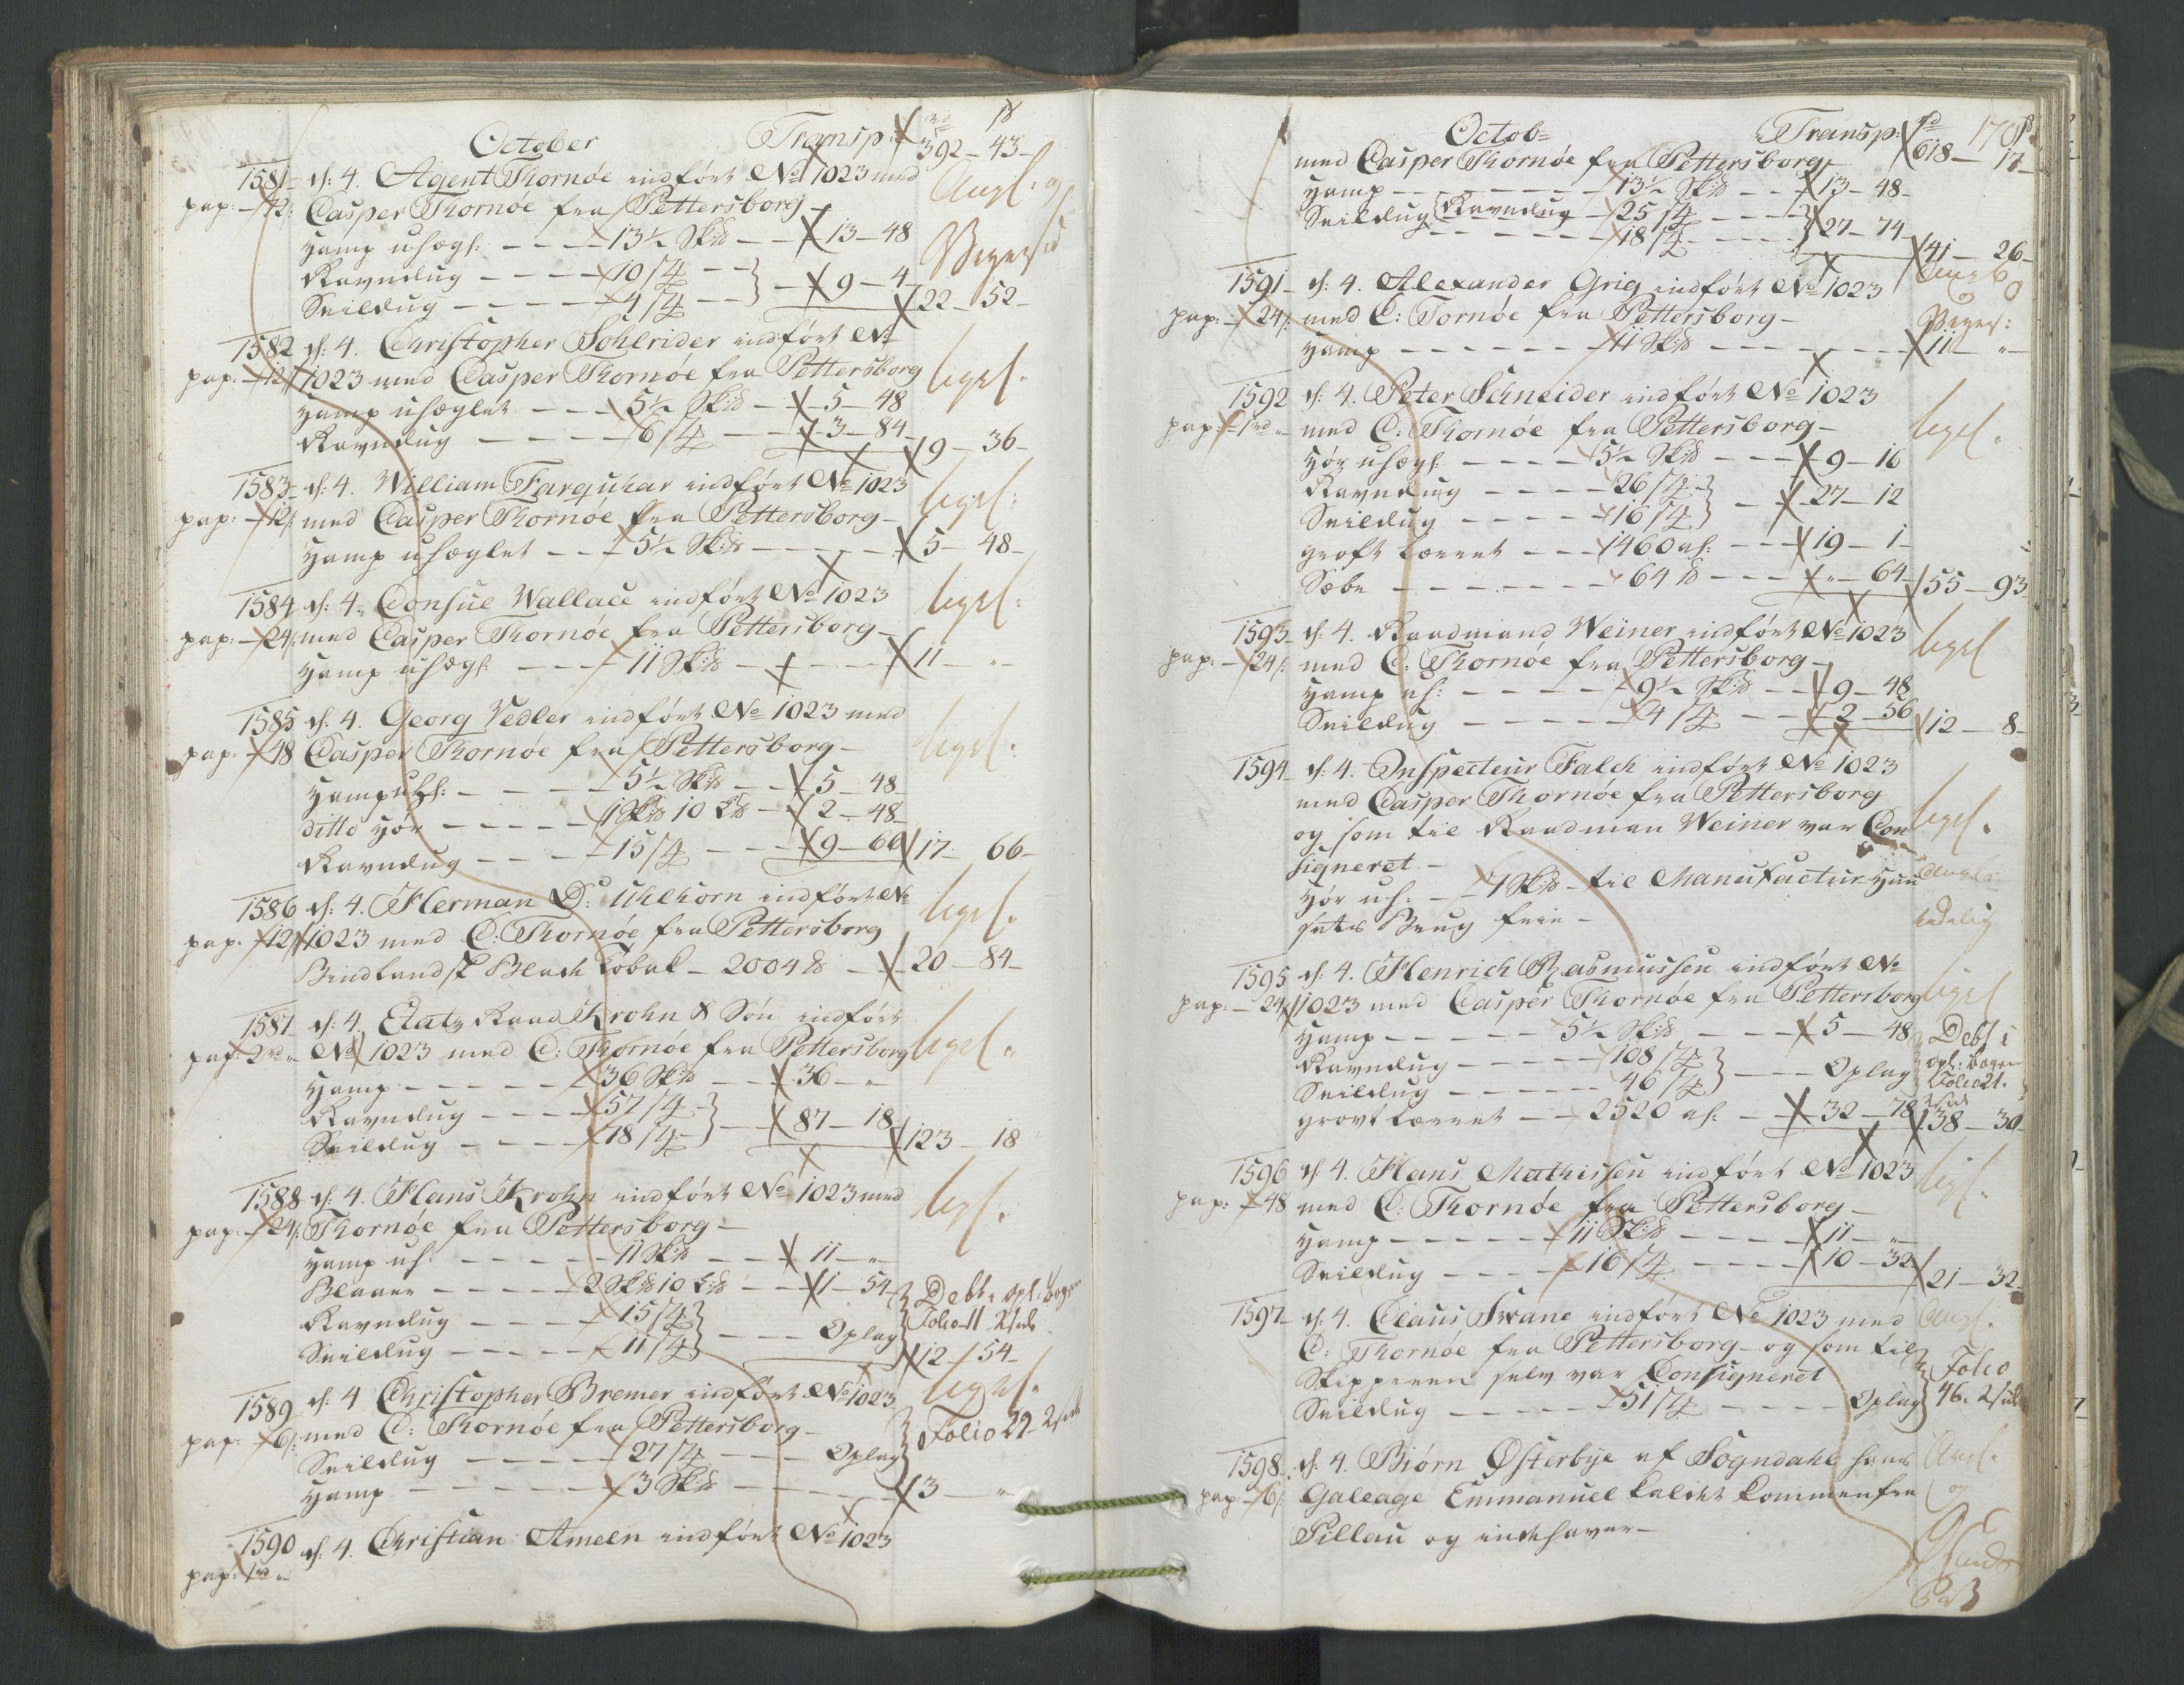 October Transp: 392 - 43 -
1581 d: 4. Agent Thornöe indfört No 1023 med
pap: - 12 Casper Thornöe fra Pettersborg -
Hamp uhægl: - - - 13½ Sk℔ - - 13 - 48
Ravndug - - - - 10/4 - -
Seildug - - - - 4/4 - - } - 9 - 4 22 - 52 -
1582 d: 4. Christopher Sohlrider indfört No
pap: - 12 1023 med Casper Thornöe fra Pettersborg ligel.
Hamp uhæglet - - - 5½ Sk℔ - 5 - 48
Ravndug - - - - 6/4 - - 3 - 84 9 - 36 -
1583 d: 4. William Farquhar indfört No 1023 ligel:
pap: - 12 med Casper Thornöe fra Pettersborg -
Hamp uhæglet - - - 5½ Sk℔ - - - - 5 - 48 -
1584 d: 4. Consul Wallace indfört No 1023 ligel:
pap: - 24 med Casper Thornöe fra Pettersborg -
Hamp uhægl: - - - 11 Sk℔ - - - - 11 - "
1585 d: 4. Georg Vedler indfört No 1023 med
pap. - 48 Casper Thornöe fra Pettersborg - ligel:
Hamp uh: - - - - 5½ Sk℔ - - 5 - 48
ditto Hör - - - - 1 Sk℔ 10 L℔ - 2 - 48
Ravndug - - - - 15/4 - - - 9 - 66 17 - 66 -
1586 d: 4. Herman D: Uhlhorn indfört No ligel.
pap. - 12 1023 med C: Thornöe fra Pettersborg
Blade Tobak - 2004 ℔ - 20 - 84 -
1587 d: 4. Etats Raad Krohn & Sön indfört
pap: 2 rd " No 1023 med C: Thornöe fra Pettersborg ligel.
Hamp - - - - - 36 Sk℔ - - 36 - "
Ravndug - - - 57/4
Seildug - - - - 18/4 } - - 87 - 18 123 - 18
1588 d: 4. Hans Krohn indfört No 1023 med
pap: - 24 Thornöe fra Pettersborg - ligel.
Hamp uh: - - - - - 11 Sk℔ - - 11 - "
Blaar - - - - 2 Sk℔ 10 L℔ - - 1 - 54 Debt. opl: bogen
Ravndug - - - - 15/4 Folio 11
Seildug - - - - 11/4 } - - - Oplag 12 - 54 -
1589 d: 4 Christopher Bremer indfört No 1023 ligel.
pap: - 6 med C: Thornöe fra Pettersborg - Folio 29
Seildug - - - - 27/4 - - - Oplag
Hamp - - - - - 3 Sk℔ - - - - 3 - "
1590 d: 4. Christian Ameln indfört No 1023
pap: 1 rd "
Octob= Transp: 170
med Casper Thornöe fra Pettersborg 618 - 17 -
Hamp - - - - - - 13½ Sk℔ - - 13 - 48 -
Seildug Ravndug - 25/4 - - -
- - - - - - 18/4 - - - } 27 - 74 41 - 26 -
1591 d: 4. Alexander Grig indfört No 1023
pap: - 24 med C: Tornöe fra Pettersborg -
Hamp - - - - - - 11 Sk℔ - - - - - 11 - "
1592 d: 4. Peter Schneider indfört No 1023
pap: 1 rd " med C: Thornöe fra Pettersborg - ligel.
Hör uhægl: - - - - 5½ Sk℔ - - - 9 - 16
Ravndug - - - - 26/4
Seildug - - - - 16/4 } - 27 - 12
groft Lærret - - - 1460 al: - - 19 - 1 -
Sæbe - - - - - - 64 ℔ - - - " - 64 55 - 93
1593 d: 4. Raadmand Weiner indfört No 1023
pap: - 24 med C: Thornöe fra Pettersborg - ligel
Hamp uh: - - - - - 9½ Sk℔ - - 9 - 48
Seildug - - - - - 4/4 - - 2 - 56 12 - 8 -
1594 d: 4. Inspecteur Falch indfört No 1023
med Casper Thornöe fra Pettersborg
og som til Raadman Weiner var Con ligel.
signeret -
Hör uh: - - 1 Sk℔ - til Manufactur Huu
sets Brug frie -
1595 d: 4. Henrich Rasmussen indfört No
pap: - 24 1023 med Casper Thornöe fra Pettersborg ligel
Hamp - - - - - 5½ Sk℔ - - - 5 - 48 Debt i
Ravndug - - - - - 108/4 opl: bogen
Seildug - - - - - 46/4 } - - - Oplag Folio 21.
grovt Lærret - - 2520 al: - 32 - 78 38 - 30 -
1596 d: 4. Hans Mathissen indfört No 1023
pap: - 48 med C: Thornöe fra Pettersborg - ligel.
Hamp - - - - - 11 Sk℔ - - - - 11 - "
Seildug - - - - 16/4 - - - - 10 - 32 21 - 32
1597 d: 4. Claus Svane indfört No 1023 med
C: Thornöe fra Pettersborg - og som til
Skipperen selv var Consigneret Folio
Seildug - - - - - 51/4 - - - - Oplag 46.
1598 d: 4. Biörn Østerbye af Sogndahl hans
pap - 6 Galeage Emmanuel kaldet kommen fra
Pillau og indehaver -